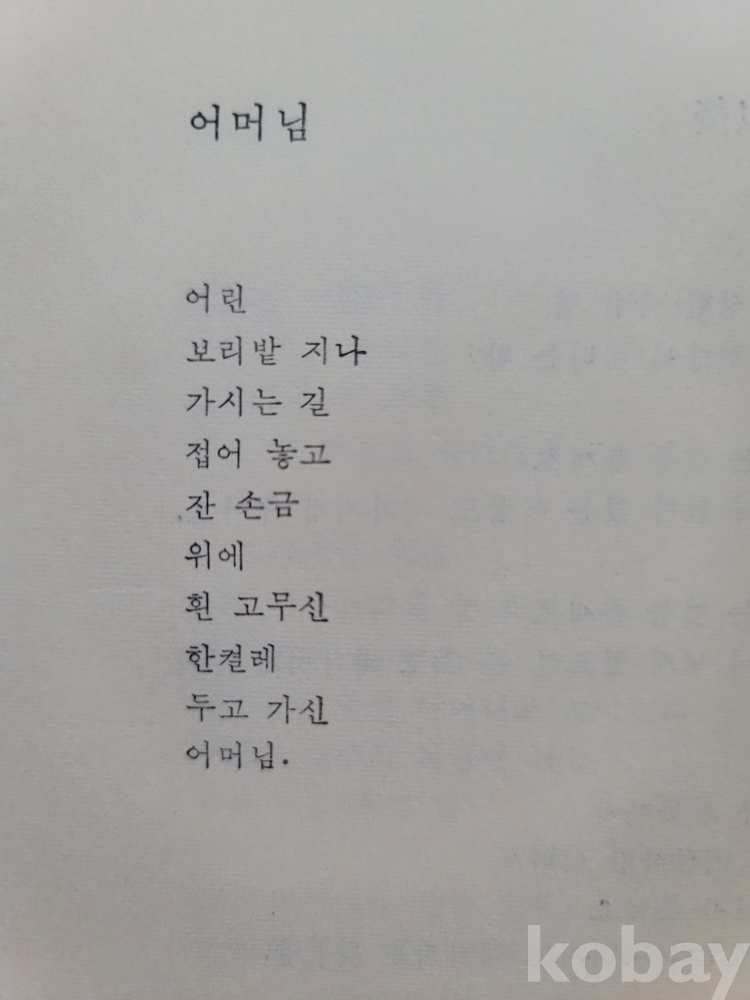 어머님
어린
보리밭 지나
가시는 길
접어 놓고
잔 손금
위에
흰 고무신
한켤레
두고 가신
어머님.
kobay